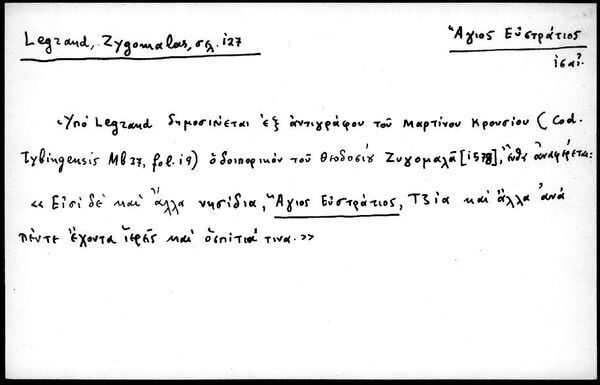 Legrand, Zygomalas, σελ. 127
Ἅγιος Εὐστράτιος
Ὑπὸ Legrand δημοσιεύεται ἐξ ἀντιγράφου τοῦ Μαρτίνου Κρουσίου (Cod.
Tybingensis Mb 37, fol. 19) ὁδοιπορικὸν τοῦ Θεοδοσίου Ζυγομαλᾶ [1578], ἔνθα ἀναφέρεται:
«Εἰσὶ δὲ καὶ ἄλλα νησίδια, Ἅγιος Εὐστράτιος, Τζία καὶ ἄλλα ἀνὰ
πέντε ἔχοντα ἱερῆς καὶ ὁσπίτια τινα.»